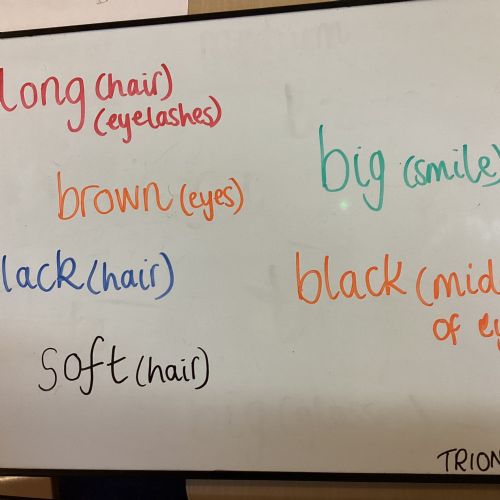 long (hair)
(eyelashes)
big (smile)
brown (eyes)
lack (hair)
black (mid
of ey
soft (hair)
TRION